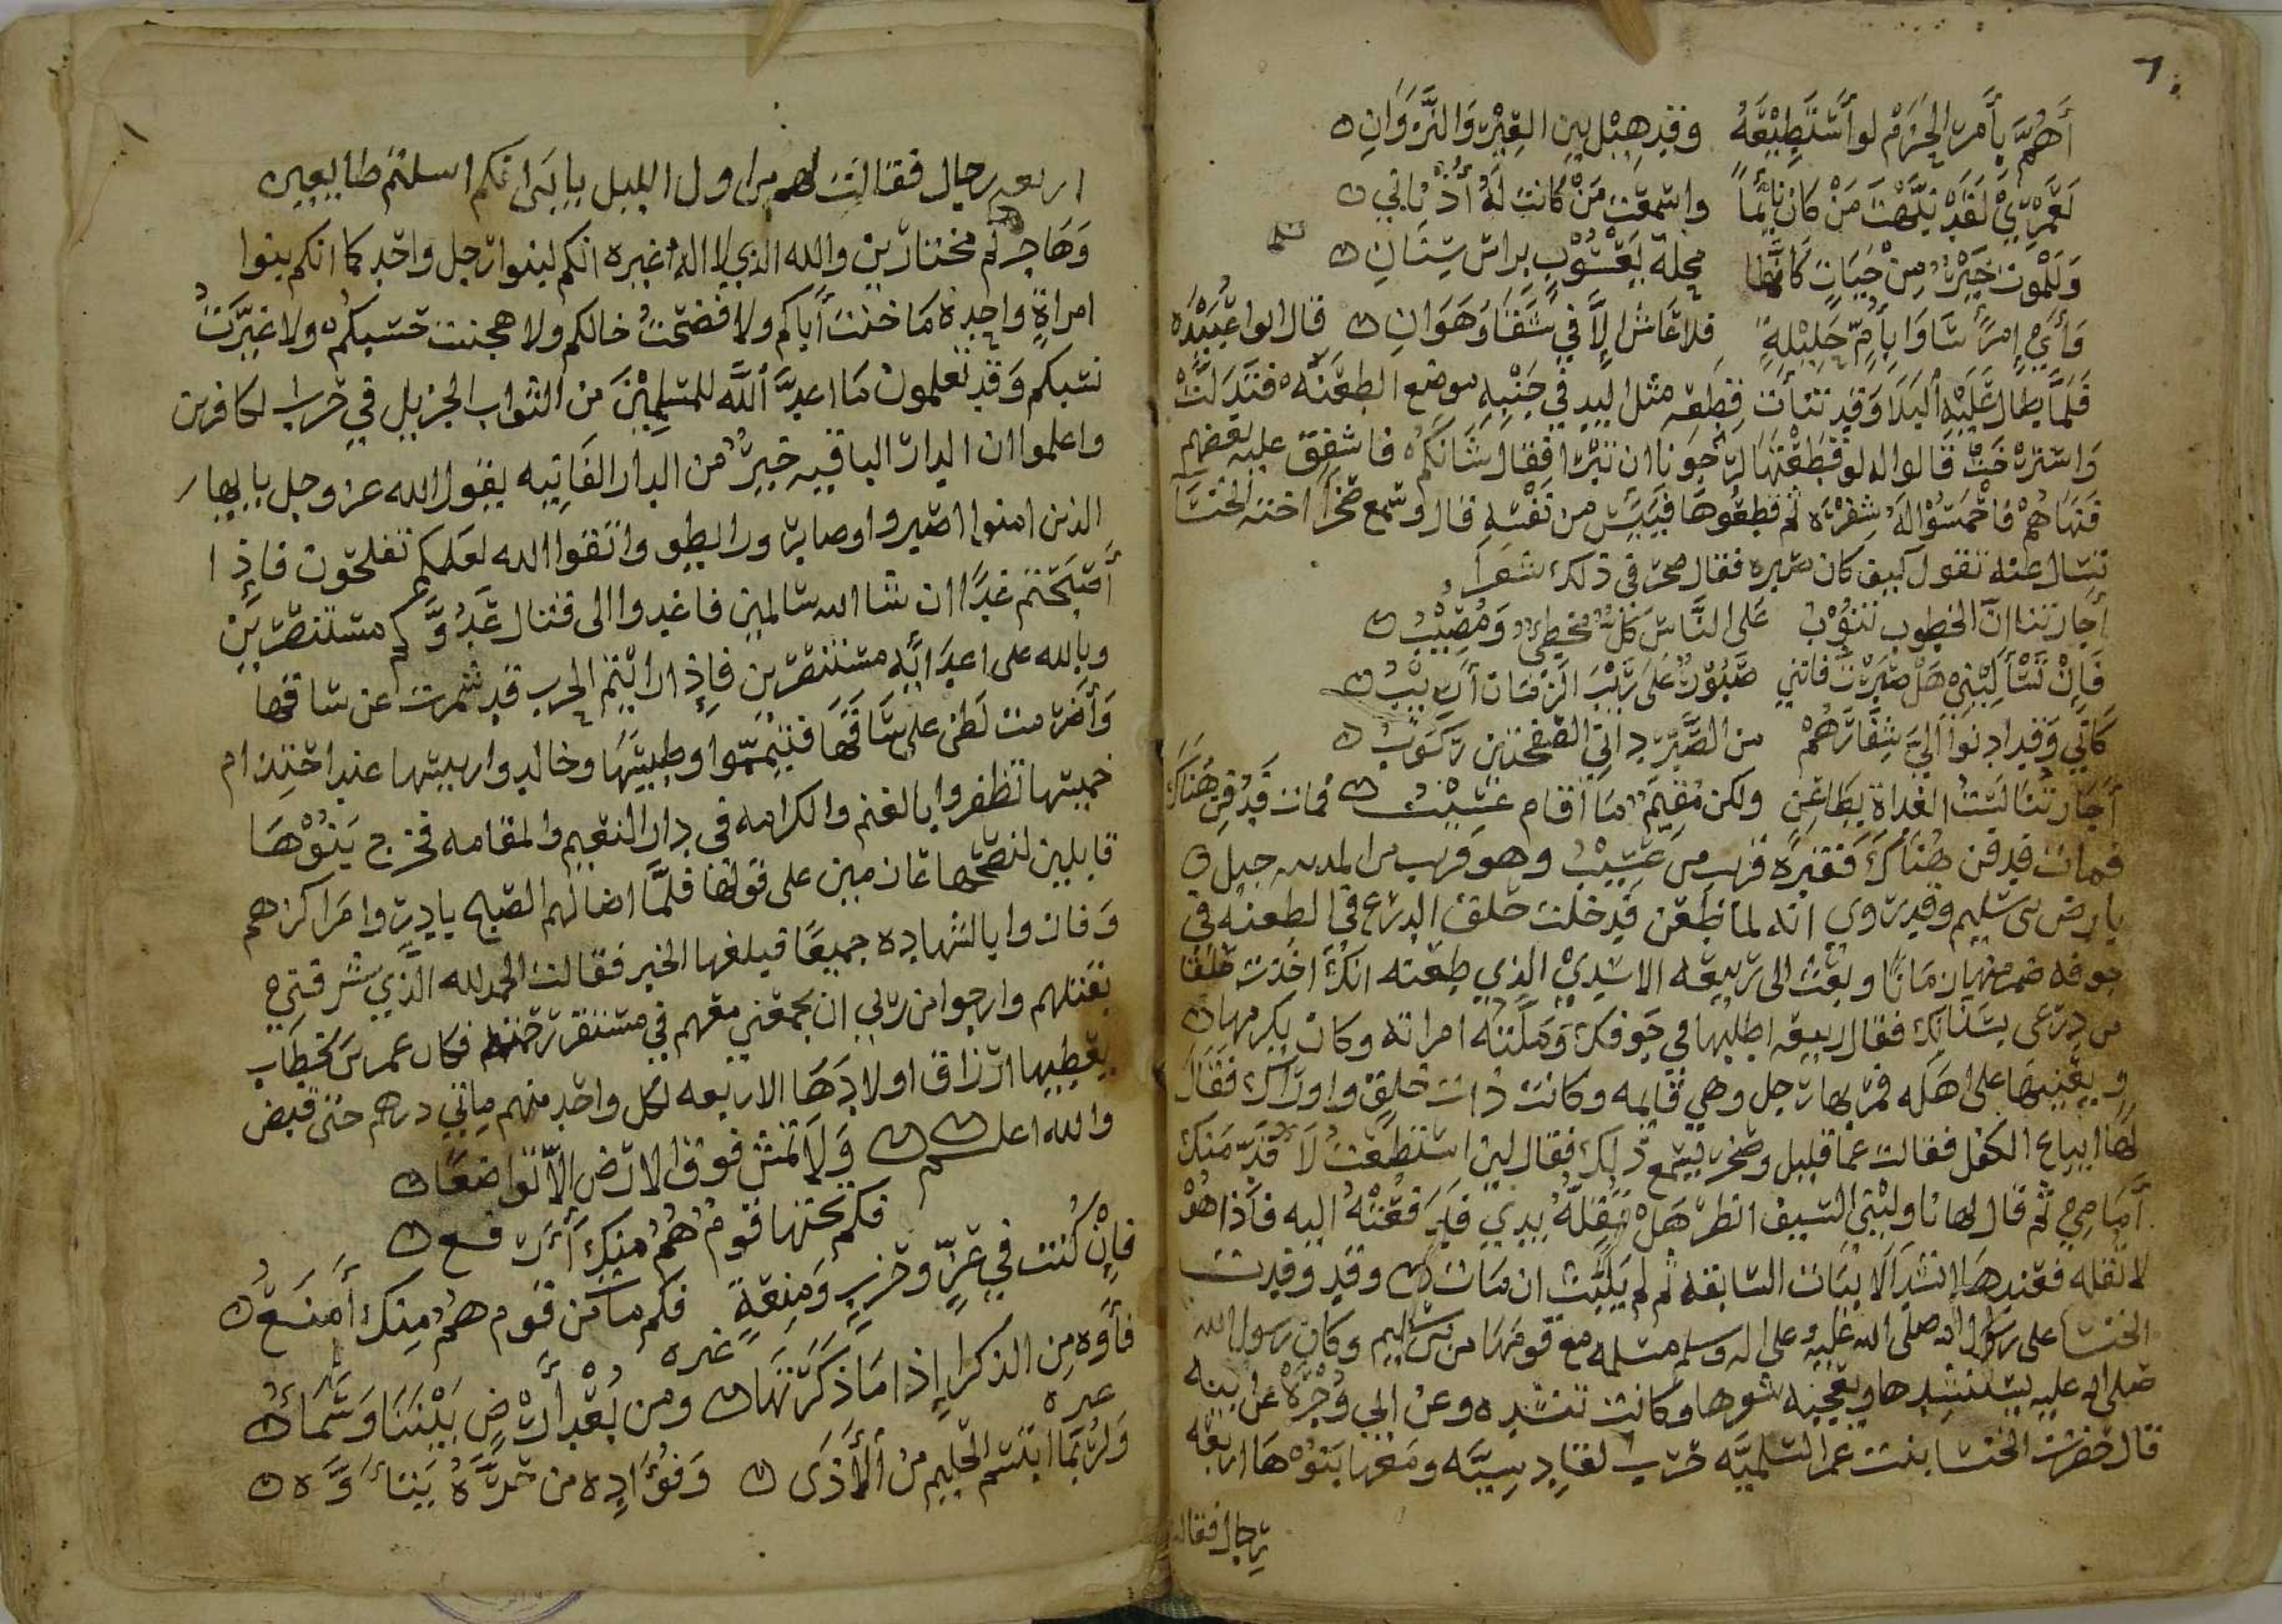 ٦
أَهُمُّ بِأَمرِ الحَزمِ لو أَستَطِيعُهُ وقد حِيْل بين العِيْرِ وَالنَّزَوَانِ
لَعَمْرِيْ لَقَدْ نَبَّهْتَ مَنْ كَانَ نَائِمًا واسْمَعَت مَنْ كَانَت لَهُ أُذُنَانِي
وَلَلْمَوت خَيْرٌ مِنْ حَيَاتٍ كَأَنَّهَا محلة يَعْسُوبٍ بِرَاسِ سِنَانِ
وَأَيُّ امرَءٍ سَاوَا بِأُمٍّ حَلِيْلَةٍ فلا عَاشَ إلَّا فِي شَقَا وَهَوَانِ قال ابو عُبَيْدَه
فَلَمَّا طال عَلَيْهِ البَلَا وَقد نتأت قطعه مثل اليد فِي جَنْبِهِ موضع الطعْنَه فَتَدَلَّتْ
وَاسترْخَتْ قالوا له لو قَطَعْتَهَا لرَجَونا ان تبْرَا فقال شَانَكُم فاشفق عليه بعضهم
فَنَهَاهُمْ فَاحْمَسُوْا لَهُ شفْرَه ثم قطعُوهَا فيَئِسَ من نَفْسِهِ قال وسمع صَخْرًا اختَه الخنسَا
تسال عنه تقول كيف كان صَبره فقال صخر في ذلك شعرا
أَجَارتنا انّ الخطوب تَنُوْبُ عَلى النَّاس كلّ مُخطِئٍ وَمُصِيْبُ
فَإِنْ تَسْأَلِيْنِي هَلْ صَبَرْتَ فانني صَبُوْرٌ عَلَى رَيْبِ الزَمَان أَرِيْبُ
كَأَنِّي وَقد ادنوا إلَيَّ شِفَارَهُمْ من الصَّبْرِ دامي الصفحتين رَكُوبُ
أَجَارتُنا لَسْتُ الغداة بِظَاعِنٍ ولكن مُقِيْمٌ ما أَقَام عَسِيْبُ فمات فَدُفِنَ هُنَاكَ
فمات فدفن هُنَاكَ فقبْرُه قريب من عَسِيْبُ وهو قريب من المدينه جبل
بارض بني سليم وقد روي انه لما طُعِن قد دخلت حلق الدرع في الطعنه في
جوفه ضمر منها زمانًا وبعث الى ربيعه الاسديْ الذي طعنه انك اخذت حلقا
من درعي بسنانِك فقال ربيعه اطلبها في جوفك وَمَلَّتْهُ امراته وكان يكرمها
ويعينها على اهله فمر بها رجل وهي قايمه وكانت ذات خلقٍ واوراك فقال
لها ايباع الكفل فقالت عما قليل وصخر يسمع ذلك فقال لين استطعت لاقدّمنك
أَمامِي ثم قال لها ناوليْنِي السيف انظر هَلْ تُقِلُّهُ يدي فَدَفَعَتْهُ اليه فَاذا هُوْ
لا تقله فعندها انشد الابيات السابقه ثم لم يَلبَث ان مات وقد وفدت
الخنسا على رسول الله صلى الله عليه وعلى اله وسلم مسلمه مع قومها من بني سليم وكان رسول الله
صلى الله عليه يستنشدها ويعجبه شعرها وكانت تنشده وعن ابي وُجْرَه عن ابيه
قال حضرت الخنسا بنت عمر السلميَّه حَرب القادسيَّه ومعها بَنُوْهَا اربعه
رجال فقالت
اربعه رجال فقالت لهم من اول الليل يا بَنِيَّ انكم اسلمتم طايعين
وَهَاجرتم مختارين والله الذي لا اله غيره انكم لبنوا رجل واحد كما انكم بنوا
امراةٍ واحِدة مَا خنتُ أَباكم ولا فضحتُ خالكم ولا هجنت حسبكم ولا غيّرتُ
نسبكم وَقد تعلمون مَا اعدَّ اللَّه للمسلِمِيْنَ من الثواب الجزيل في حَرب الكافرين
واعلموا ان الدار الباقيه خيرٌ من الدار الفَانِيه يقول الله عز وجل يا ايها
الذين امنوا اصبروا وصابروا ورابطوا واتقوا الله لعلكم تفلحون فاذا
أَصْبَحْتم غدًا ان شا الله سالمين فاغدوا الى قتال عَدُوِّكُم مستنصرين
وبالله على اعدَائِه مستنصرين فإذا رايتم الحرب قد شمرت عن ساقها
وَأَضرمت لَظى على سَاقِهَا فتيمّموا وطِيسَهَا وخالدوا رييسها عند احتدام
خميسها تظفروا بالغنم والكرامه في دار النعيم والمقامه فخرج بَنُوْهَا
قابلين لنصحها عازمين على قولها فلمَّا اضا لهم الصبح بادروا مَراكزهم
وَفازوا بالشهاده جميعًا فبلغها الخبر فقالت الحمد لله الَّذِي شرفنِي
بقتلهم وارجوا من ربي ان يجمعني معهم في مستقر رَحمته فكان عمر بن الخطاب
يعطيها ارزاق اولادهَا الاربعه لكل واحدٍ منهم مائتي درهم حتى قبض
والله اعلم وَلَا تَمشِ فوق الارض الّا تَواضعًا
فكم تحتها قومٌ هُمُ منك أَرفع
فإنْ كُنتَ في عزٍّ وحَرزٍ وَمنعَةٍ فكم مات من قوم همُ مِنك أَمنَعُ
غيره
فأَوْه من الذكرا إذا مَا ذَكَرْتَهَا ومن بُعْدِ أَرْضٍ بَيْنَنَا وَسَمَاءُ
غيره
وَلَرُبَّمَا ابتسم الحَلِيم من الأَذَى وَفُؤَادِه من حَرَّهُ يَتأَوَّه